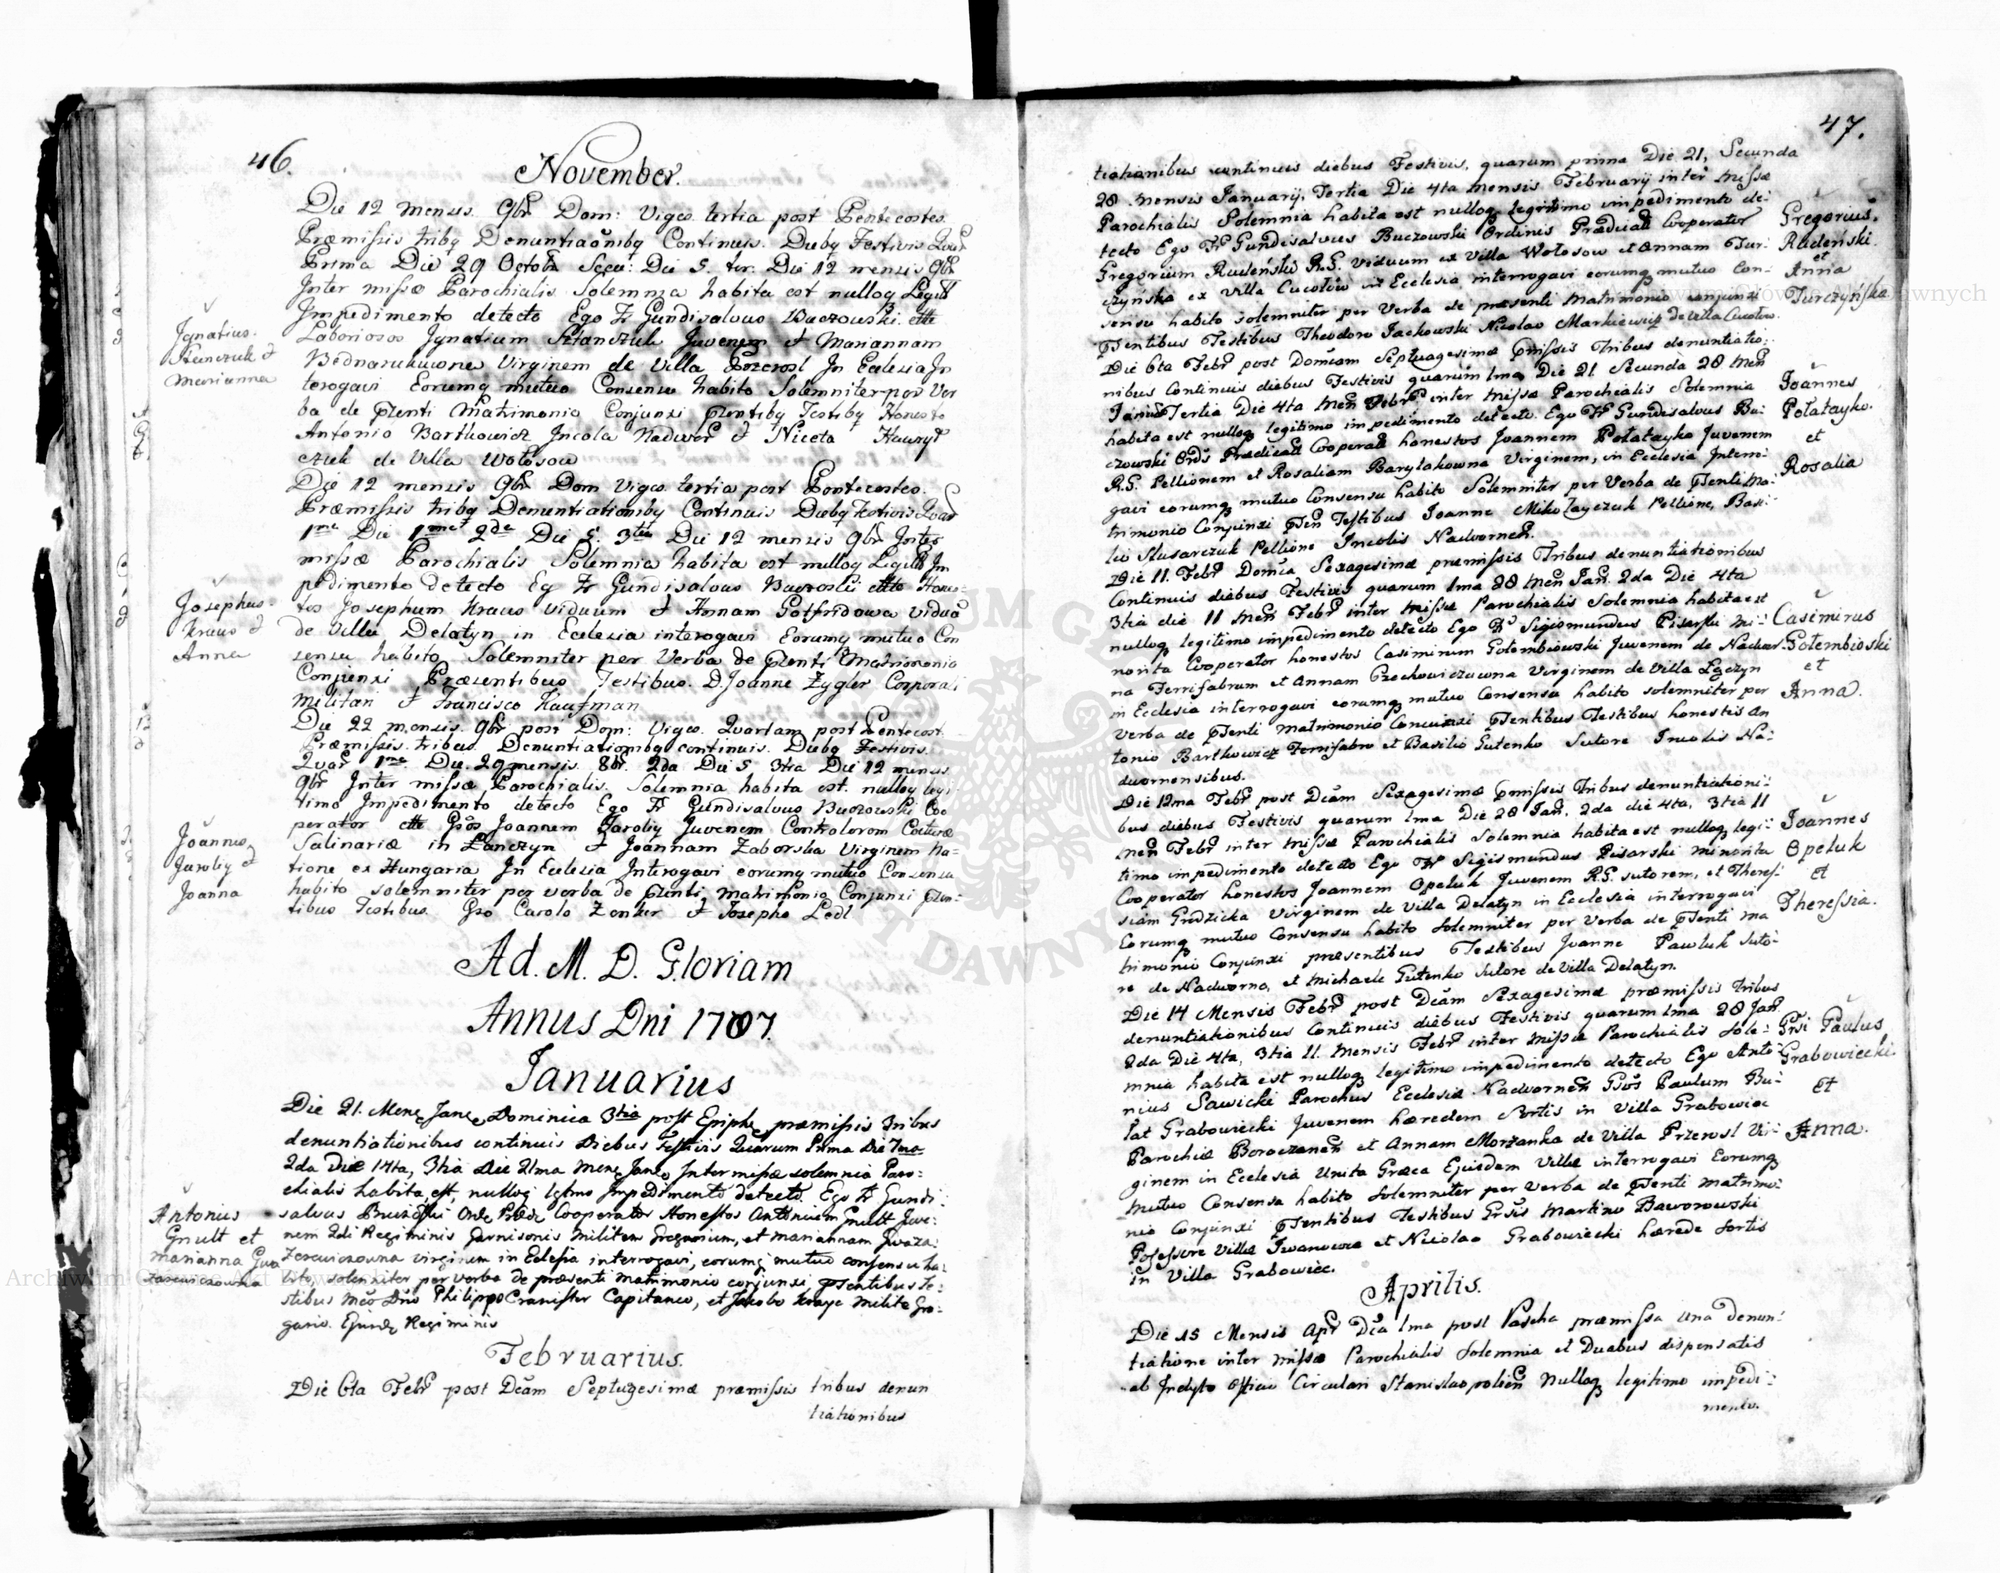 46.
November.
Die 12 Mensis 9br Dom: Vigea tertia post Pentecostes.
Præmissis tribq Denuntiaõnibq Continuis Diebq Festivis Quar
Prima Die 29 Octobr Secu: Die 5. ter. Die 12 mensis 9br
Inter missæ Parochialis Solemnia habita est nulloq Legitt
Impedimento detecto Ego Fr Gundisalvus Buczowski
Laboriosos Ignatium Juvenem et Mariannam
Virginem de Villa In Ecclesia In
terogavi Eorumq mutuo Consensu habito Solemniter per Ver
ba de Pñenti Matrimonio Conjunxi Pñentibq Testibq Honesto
Antonio Bartkowicz Incola Nadwor et Niceta Hawry
czuk de Villa Wołosow
Ignatius
et
Marianna
Die 12 mensis 9br Dom Vigea tertia post Pentecostes.
Præmissis tribq Denuntiationibq Continuis Diebq Festivis Quar
Die 2da Die 5. 3tia Die 12 mensis 9br Inter
missæ Parochialis Solemnia habita est nulloq Legitt Im
pedimento detecto Eg Fr Gundisalvus Buczowski Hones
tos Josephum Kraus Viduum et Annam Gotfridowa viduã
de Villa Delatyn in Ecclesia interogavi Eorumq mutuo Con
sensu habito Solemniter per Verba de Pñenti Matrimonio
Conjunxi Præsentibus Testibus. D. Joanne Zygler Corporali
Militari et Francisco Kaufman
Josephus
Kraus et
Anna
Die 22 mensis 9br post Dom: Vigea. Quartam post Pentecost
Præmissis tribus Denuntiationibq continuis Diebq Festivis
Quar 1ma Die 29 mensis 8br. 2da Die 5 3tia Die 12 mensis
9br Inter missæ Parochialis Solemnia habita est nulloq legi
timo Impedimento detecto Ego Fr Gundisalvus Buczowski Coo
perator Joannem Jarolig Juvenem Controlorem Cocturæ
Salinariæ in Łanczyn et Joannam Zaborska Virginem na=
tione ex Hungaria In Ecclesia Interogavi eorumq mutuo Consensu
habito solemniter per verba de Pñenti Matrimonio Conjunxi Pñen=
tibus Testibus Carolo Zenker et Josepho Ledl
Joannes
Jarolig et
Joanna
Ad. M. D. Gloriam
Annus Dni 1787.
Januarius
Die 21. Mens Jan Dominica 3tia post Epiph præmissis Tribus
denuntiationibus continuis Diebus Festivis Quarum Prima Die 7ma
2da Die 14ta, 3tia Die 21ma Mens Jan, Inter missæ solemnia Paro=
chialis habita est, nulloq lgtmo Impedimento detecto. Ego Fr Gundi
salvus Cooperator Honestos Antonium Gnult Juve=
nem 2di Regiminis Garnisonis Militem Gregarium, et Mariannam
virginem in Eclesia interrogavi, eorumq mutuo consensu ha=
bito, solemniter per verba de præsenti Matrimonio conjunxi Psentibus Te=
stibus Dño Philippo Cranister Capitaneo, et Jakobo Milite Gre=
gario. Regiminis
Antonius
Gnult et
Marianna
Februarius.
Die 6ta Febr post Dcãm Septuagesimæ præmissis tribus denun
tiationibus
47.
tiationibus continuis diebus Festivis, quarum prima Die 21, Secunda
28 Mensis Januarij, Tertia Die 4ta Mensis Februarij inter Missæ
Parochialis Solemnia habita est nulloq legitimo impedimento de=
tecto Ego Fr Gundisalvus Buczowski Ordinis Prædicat Cooperator
Gregorium Rudeński R.G. Viduum ex Villa Wołosow et Annam Tur=
czyńska ex Villa Cucołow in Ecclesia interrogavi eorumq mutuo Con=
sensu habito solemniter per Verba de præsenti Matrimonio conjunxi
Psentibus Testibus Theodoro Jackowski Nicolao Markiewicz de villa Cucołow.
Gregorius.
Rudeński.
et
Anna
Turczyńska
Die 6ta Febr post Domcam Septuagesimæ Pmissis Tribus denuntiatio=
nibus Continuis diebus Festivis quarum 1ma Die 21 Secunda 28 Men
Tertia Die 4ta Men Febr inter Missæ Parochialis Solemnia
habita est nulloq legitimo impedimento detecto. Ego Fr Gundisalvus Bu=
czowski Ords Prædicat Cooperat honestos Joannem Połatayko Juvenem
R.G. Pellionem et Rosaliam Barylakowna Virginem, in Ecclesia Interro=
gavi eorumq mutuo Consensu habito Solemniter per Verba de Psenti Ma=
trimonio Conjunxi Psen Testibus Joanne Mikołayczuk Pellione, Basi=
lio Slusarczuk Pellione Incolis Nadvornen.
Joannes
Połatayko.
et
Rosalia
Die 11. Febr Domca Sexagesimæ præmissis Tribus denuntiationibus
Continuis diebus Festivis quarum 1ma 28 Men Jan. 2da Die 4ta
3tia die 11 Men Febr inter Missæ Parochialis Solemnia habita est
nulloq legitimo impedimento detecto Ego Fr Sigismundus Pisarski Mi=
norita Cooperator honestos Casimirum Gołembiowski Juvenem de Nadwor=
na Ferrifabrum et Annam Virginem de Villa
in Ecclesia interrogavi eorumq mutuo Consensu habito solemniter per
Verba de Psenti Matrimonio Conjunxi Psentibus Testibus honestis An
tonio Bartkowicz Ferrifabro et Basilio Gutenko Sutore Incolis Na=
dwornensibus.
Casimirus
Gołembioski
et
Anna.
Die 12ma Febr post Dcãm Sexagesimæ Pmissis Tribus denuntiationi=
bus diebus Festivis quarum 1ma Die 28 Jan. 2da die 4ta, 3tia 11
Men Febr inter Missæ Parochialis Solemnia habita est nulloq legi=
timo impedimento detecto Ego Fr Sigismundus Pisarski Minorita
Cooperator honestos Joannem Opeluk Juvenem R.G. sutorem, et Theres=
siam Grodzicka Virginem de Villa Delatyn in Ecclesia interrogavi
Eorumq mutuo Consensu habito Solemniter per Verba de Psenti Ma
trimonio Conjunxi præsentibus Testibus Joanne Pawluk Suto=
re de Nadworna, et Michaele Gutenko Sutore de Villa Delatyn.
Joannes
Opeluk
et
Theressia.
Die 14 Mensis Febr post Dcãm Sexagesimæ præmissis Tribus
denuntiationibus Continuis diebus Festivis quarum 1ma 28 Jan
2da Die 4ta, 3tia 11. Mensis Febr inter Missæ Parochialis Sole=
mnia habita est nulloq legitimo impedimento detecto Ego Anto=
nius Sawicki Parochus Ecclesiæ Nadvornen Gsos Paulum Bu=
łat Grabowiecki Juvenem hæredem Sortis in Villa Grabowiec
Parochiæ Boroczanen et Annam Morzanka de Villa Przerosl Vir=
ginem in Ecclesia Unita Græca Ejusdem Villæ interrogavi Eorumq
Mutuo Consensu habito Solemniter per Verba de Psenti Matrimo=
nio Conjunxi Psentibus Testibus Gsis Martino Baworowski
Possessore Villæ et Nicolao Grabowiecki hærede Sortis
in Villa Grabowiec.
Gsi Paulus
Grabowiecki.
et
Anna.
Aprilis.
Die 15 Mensis Apr Dca 1ma post Pascha præmissa una denun=
tiatione inter Missæ Parochialis Solemnia et Duabus dispensatis
ab Indyto Officio Circulari Stanislaopolien Nulloq legitimo impedi=
mento.
Archiwum Główne Akt Dawnych